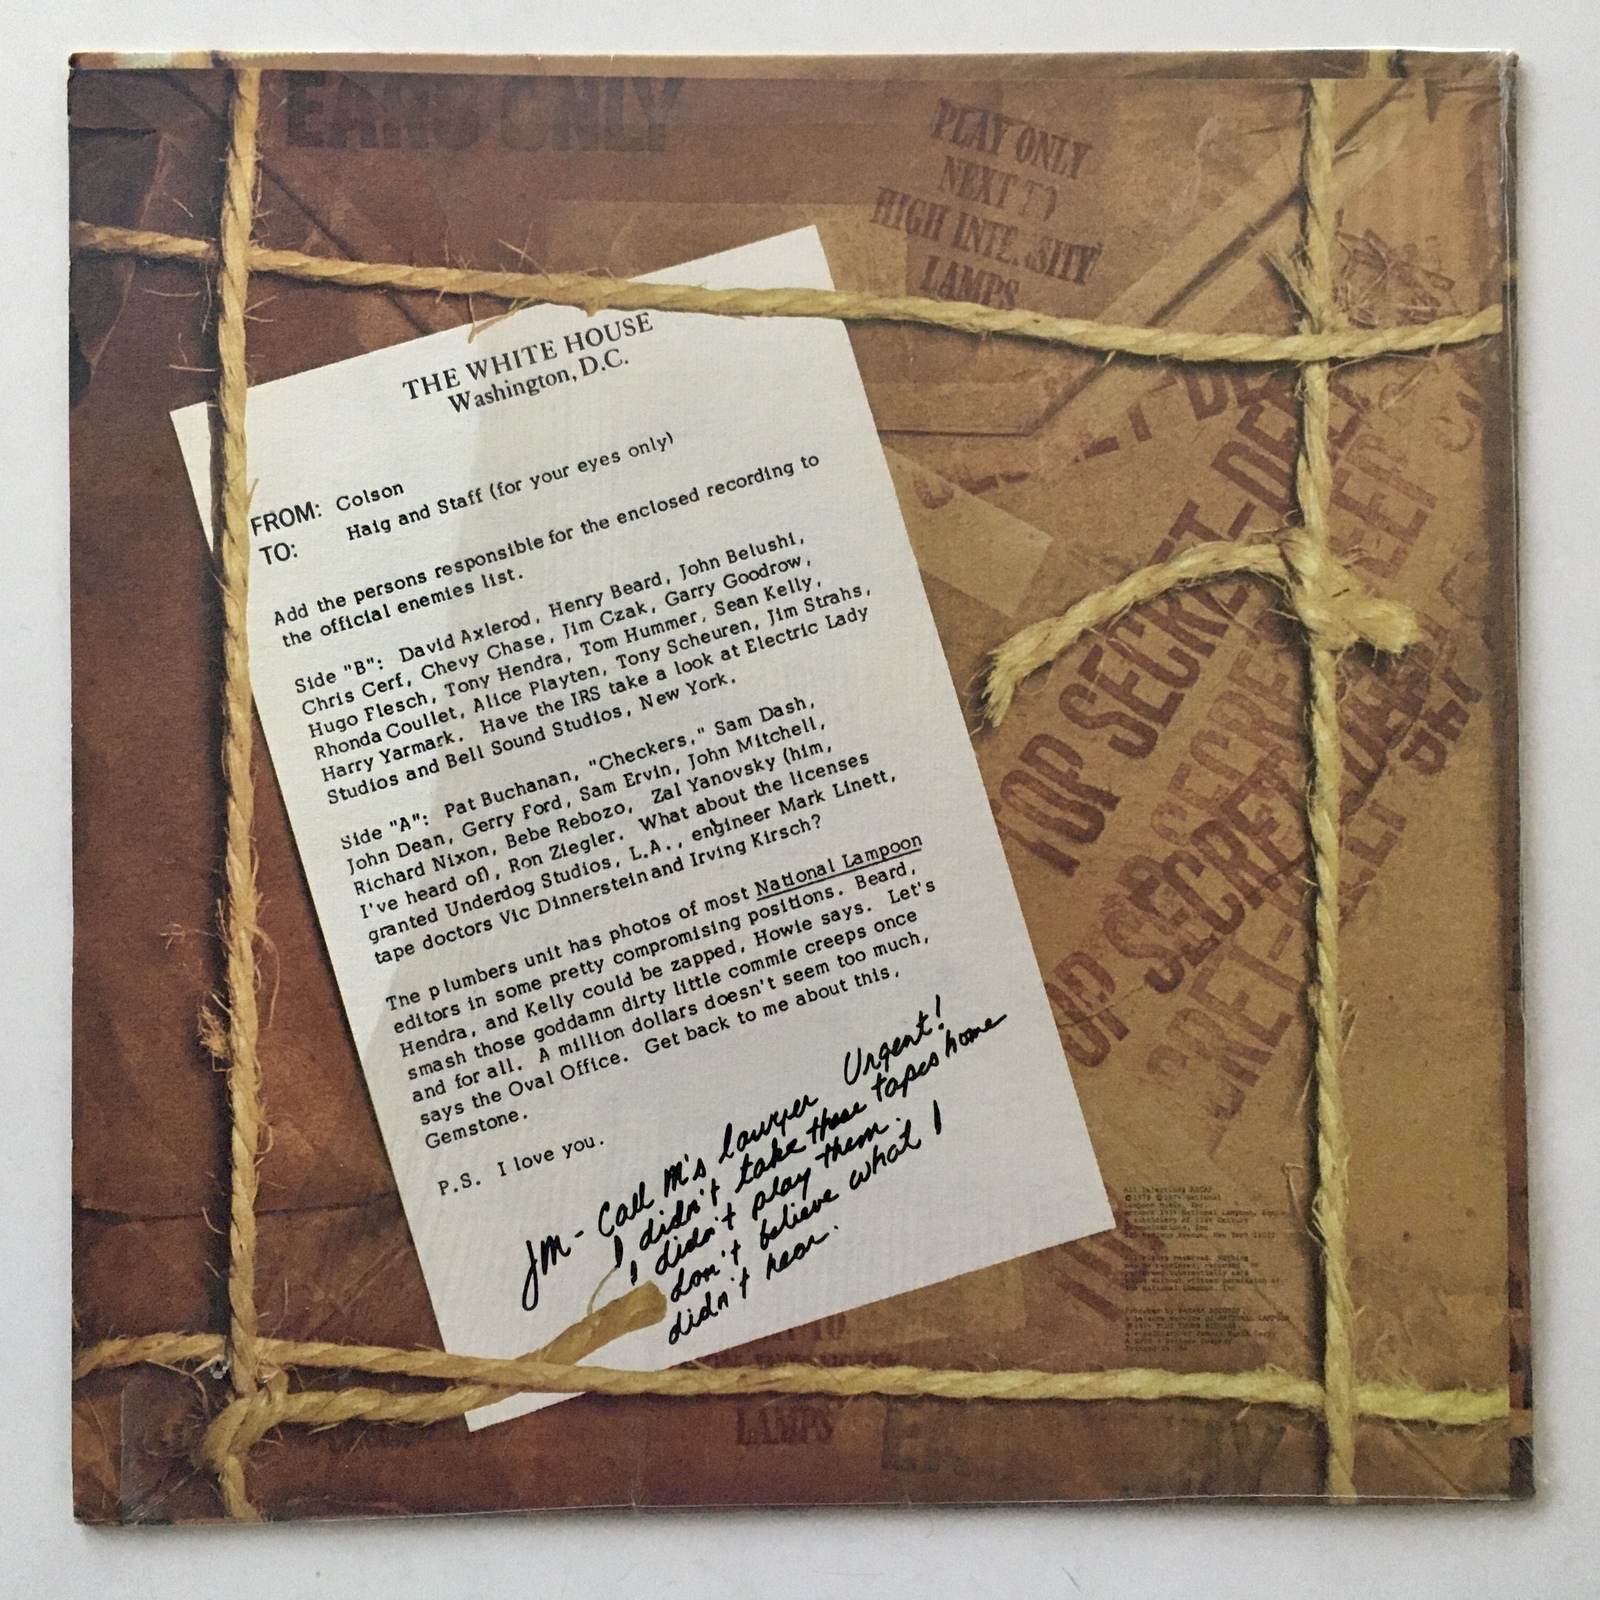 EARS ONLY
PLAY ONLY
NEXT TO
HIGH INTENSITY
LAMPS
THE WHITE HOUSE
Washington, D.C.
FROM: Colson
TO: Haig and Staff (for your eyes only)
Add the persons responsible for the enclosed recording to
the official enemies list.
Side "B": David Axlerod, Henry Beard, John Belushi,
Chris Cerf, Chevy Chase, Jim Czak, Garry Goodrow,
Hugo Flesch, Tony Hendra, Tom Hummer, Sean Kelly,
Rhonda Coullet, Alice Playten, Tony Scheuren, Jim Strahs,
Harry Yarmark. Have the IRS take a look at Electric Lady
Studios and Bell Sound Studios, New York.
Side "A": Pat Buchanan, "Checkers," Sam Dash,
John Dean, Gerry Ford, Sam Ervin, John Mitchell,
Richard Nixon, Bebe Rebozo, Zal Yanovsky (him,
I've heard of), Ron Ziegler. What about the licenses
granted Underdog Studios, L.A., engineer Mark Linett,
tape doctors Vic Dinnerstein and Irving Kirsch?
The plumbers unit has photos of most National Lampoon
editors in some pretty compromising positions. Beard,
Hendra, and Kelly could be zapped, Howie says. Let's
smash those goddamn dirty little commie creeps once
and for all. A million dollars doesn't seem too much,
says the Oval Office. Get back to me about this,
Gemstone.
P.S. I love you.
JM - Call M's lawyer Urgent!
I didn't take these tapes home
I didn't play them.
don't believe what I
didn't hear.
TOP SECRET-DEEP
TOP SECRET
LAMPS